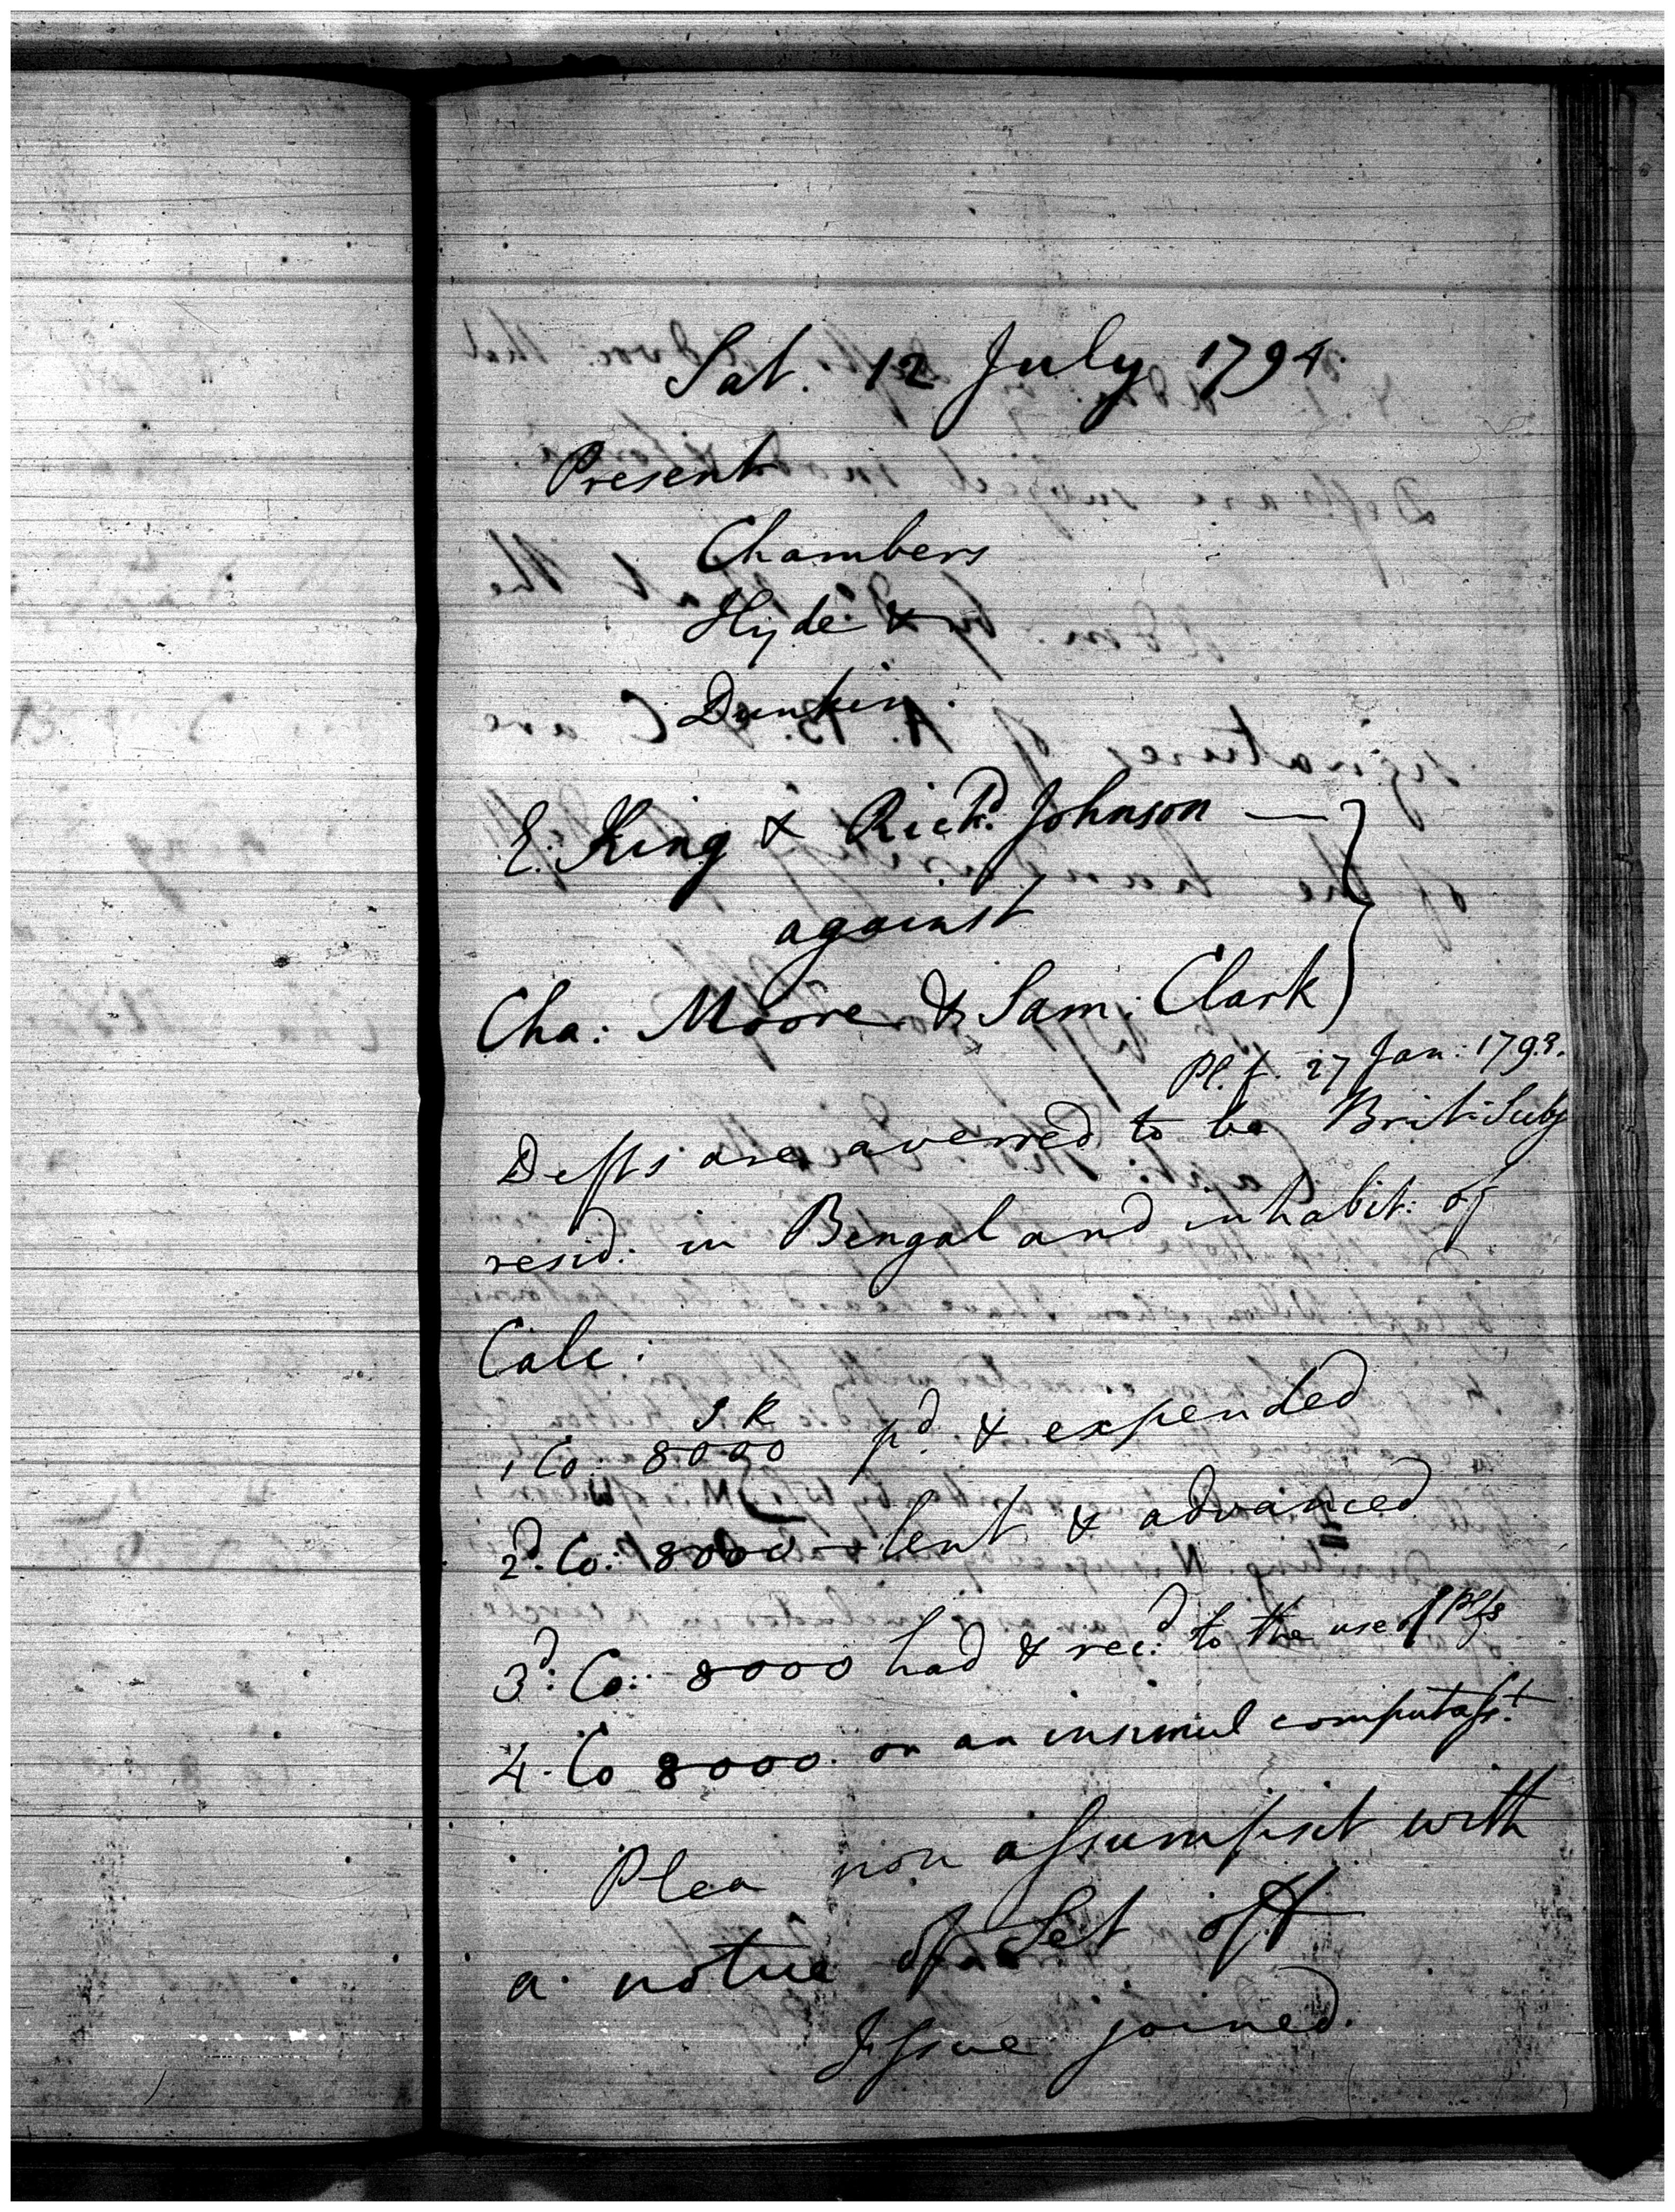 Sat. 12 July 1794.
Present
Chambers
Hyde &
Dunkin.
E. King & Richd. Johnson —
against
Cha: Moore & Sam: Clark
Pl. f. 27 Jan: 1793.
Defts are averred to be Brit: Subj
resid: in Bengal and inhabit: of
Calc:
S R
1 Co: 8000 pd. & expended
2d. Co: 8000 lent & advanced
3d: Co: 8000 had & recd. to the use of Plfs
4. Co 8000. on an insimul computasst.
Plea non assumpsit with
a notice of Set off
Issue joined.